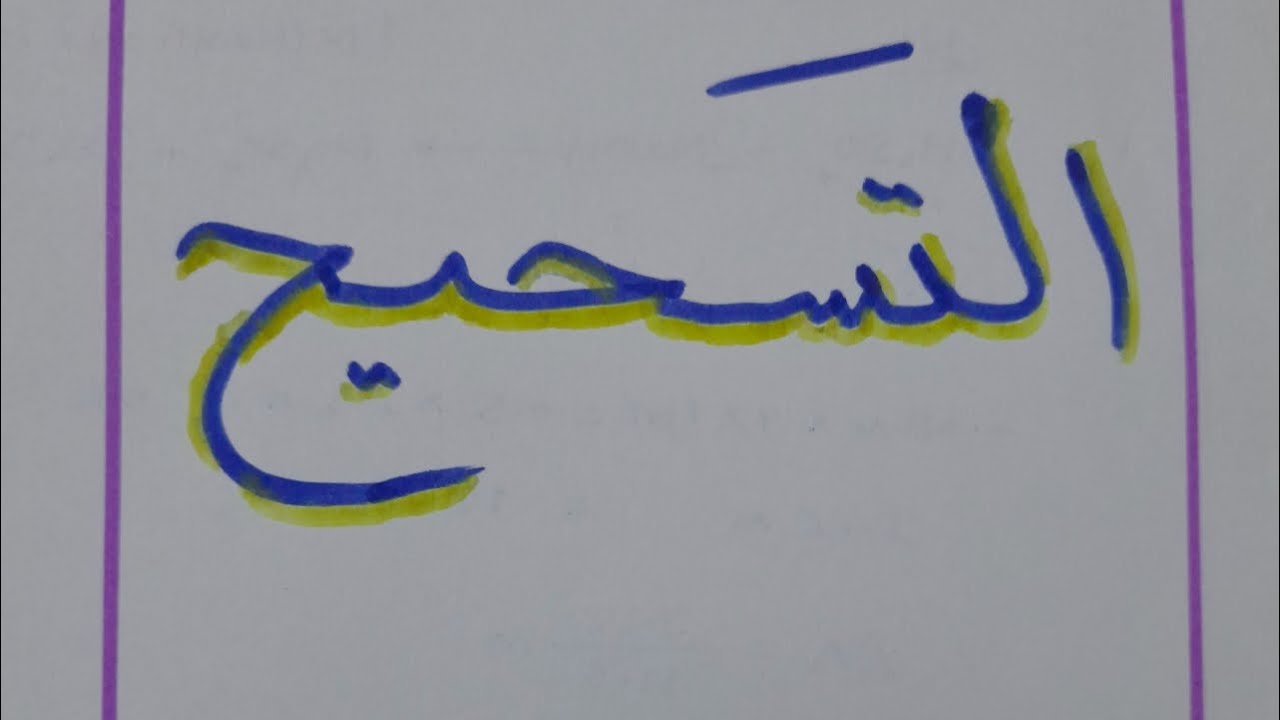 التَسحيح